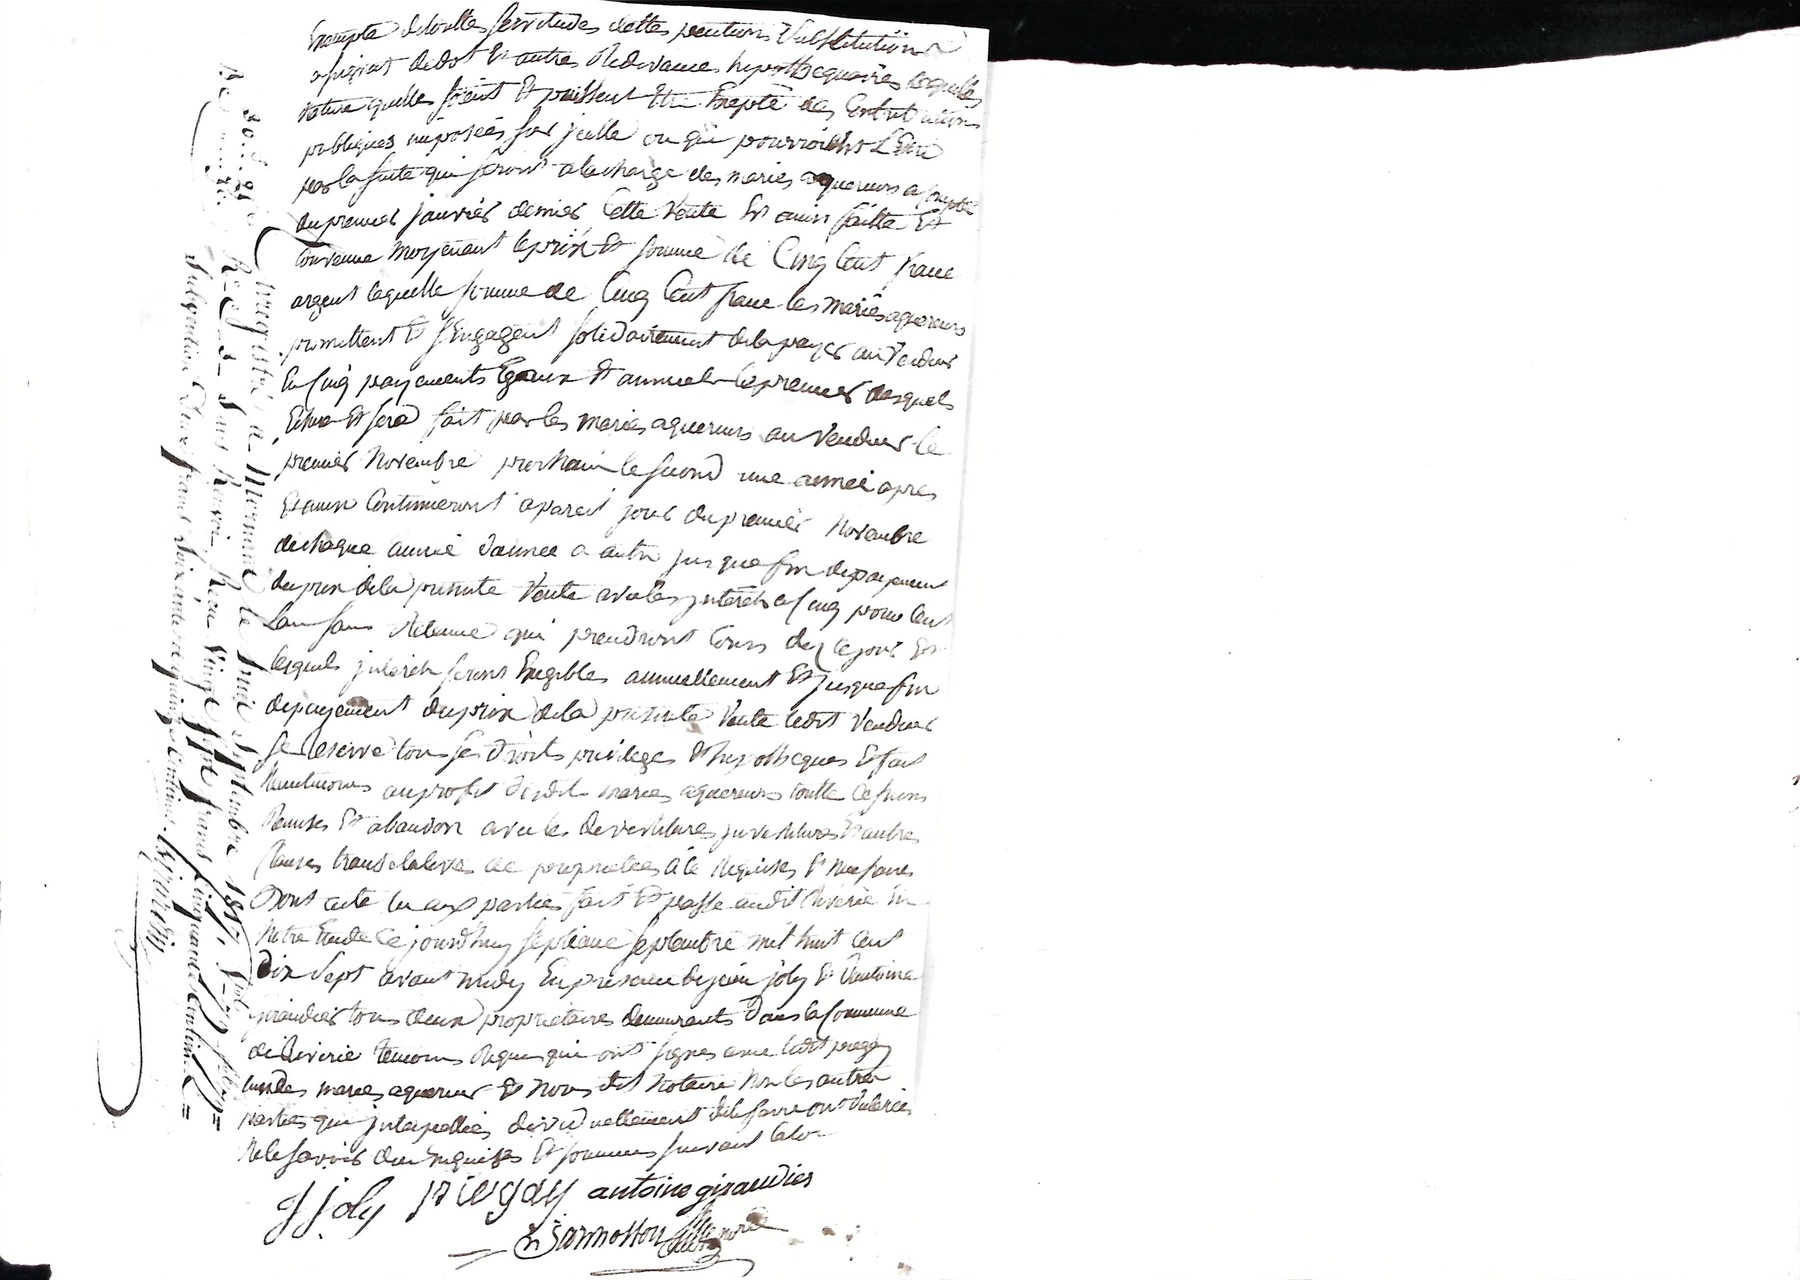 Exempte de toutte servitudes dettes pentions Substitution
asignat de dot Et autres Redevances hipothequaires de quelles
nature quelles soient Et puissent Etre Excepté des Contributions
publiques imposées sur jcelle ou qui pourroient L'Etre
par la suite qui seront a la charge des mariés aquereurs a compter
du premier janvier dernier Cette Vente Et ainsi faitte Et
Convenue moyenant le prix Et somme de Cinq Cent franc
argent laquelle somme de Cinq Cent franc les mariés aquereurs
promettent Et s'Engagent solidairement de la payer au Vendeur
En Cinq payements Egaux Et annuels le premier desquels
Echra Et sera fait par les mariés aquereurs au Vendeur le
premier Novembre prochain le second une année apres
Et ainsi Continueront a pareil jour du premier Novembre
de chaque année d'année a autre jusque fin de payement
du prix de la presente Vente avec les jnterets a Cinq pour Cent
L'an sans Retenue qui prendront Cours des ce jour Et
lesquels jnterets seront Exigibles annuellement Et jusque fin
de payement du prix de la presente Vente ledit Vendeur
se Reserve tous ses Droits privileges Et hypotheques Et fait
Neantmoins au profit desdits mariés aquereurs toutte Cessions
Remises Et abandon avec les devestitures jnvestitures Et autres
Clauses translatives de proprietées à ce Requises Et necessaires
Dont acte lu aux parties fait Et passé audit Riverie En
Notre Etude Ce jourd'huy septieme septembre mil huit cent
Dix Sept avant midy En presence de jean joly Et d'antoine
giraudier tous deux proprietaires demeurants Dans la Commune
de Riverie temoins Requis qui ont signés avec ledit pregay
l'un des mariés aquereur Et Nous dit Notaire Non les autres
parties qui jnterpellées dividuellement de le faire ont declarées
Ne le savoir de ce Enquises Et sommées suivant la loi
J joly pregay antoine giraudier
Jarnosson
Enregistré à Mornant le huit septembre 1817
Reçu Vingt sept francs Cinquante Centimes =
Subvention Deux francs soixante quinze Centimes